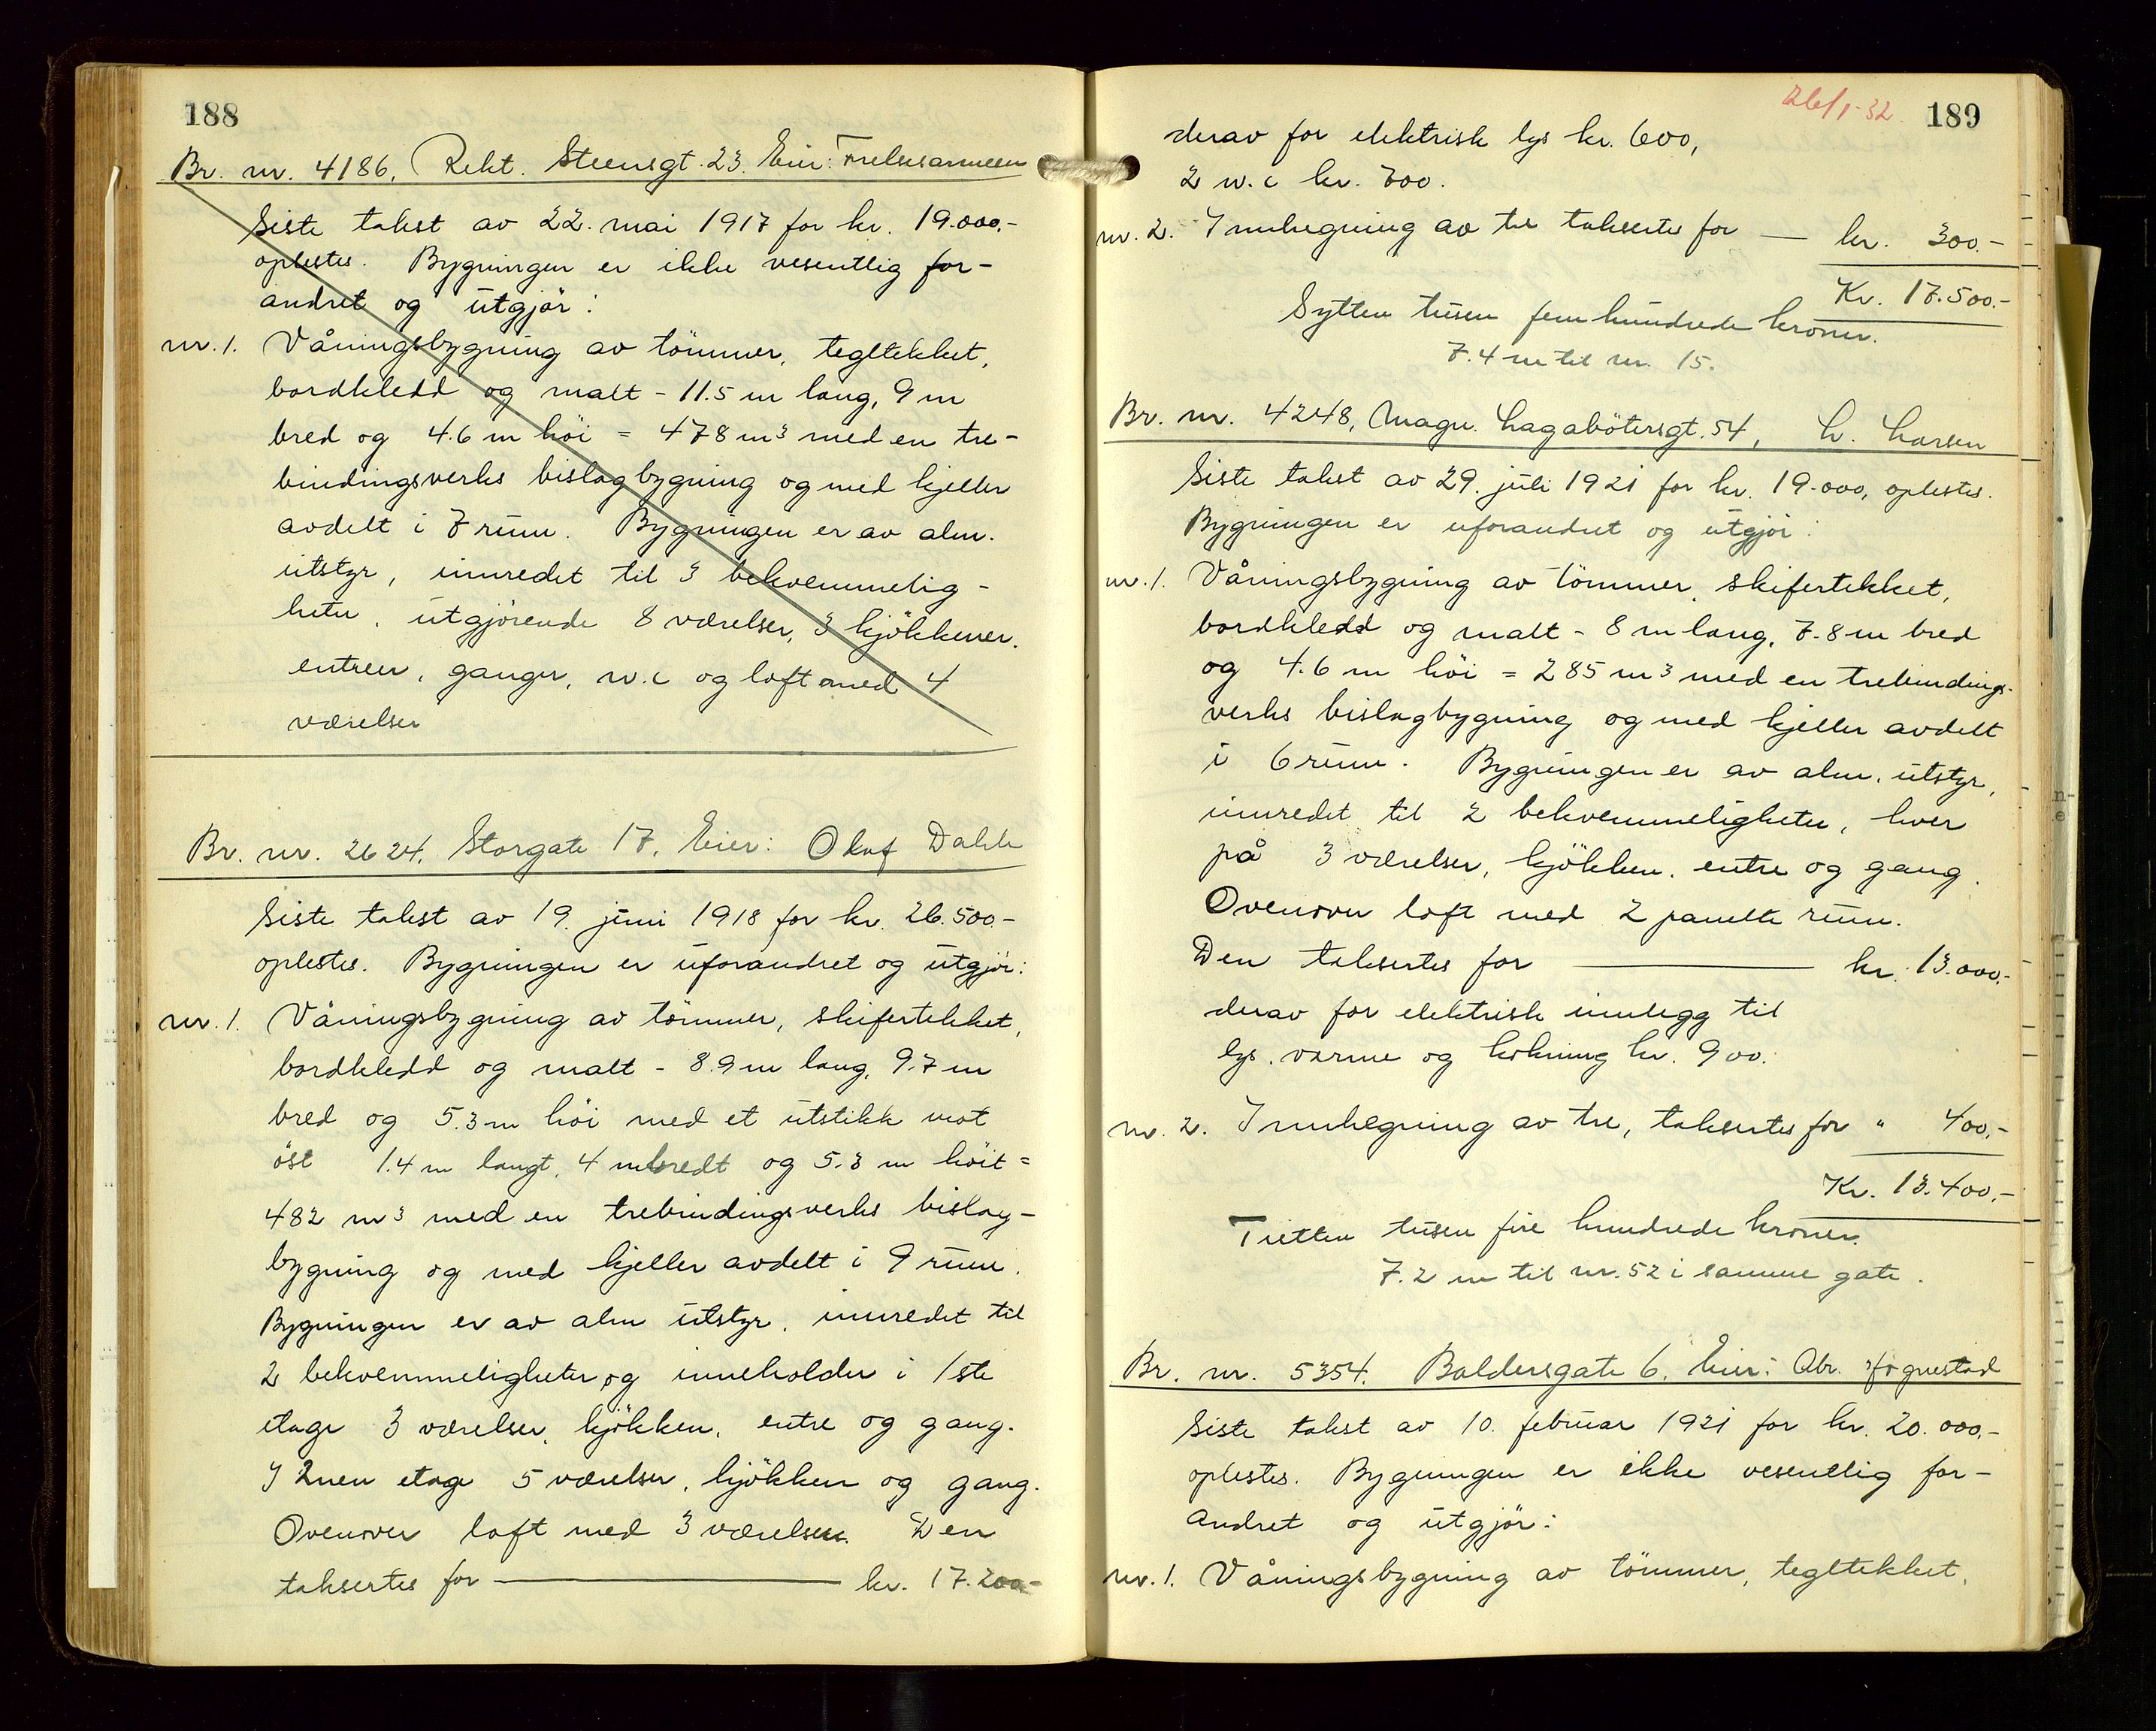 188
Br. nr. 4186, Rekt. Steensgt. 23. Eier: Frelsesarmeen
Siste takst av 22. mai 1917 for kr. 19.000.-
oplestes. Bygningen er ikke vesentlig for-
andret og utgjör:
nr. 1. Våningsbygning av tömmer, tegltekket,
bordkledd og malt - 11.5 m lang, 9 m
bred og 4.6 m höi = 478 m3 med en tre-
bindingsverks bislagbygning og med kjeller
avdelt i 7 rum. Bygningen er av alm.
utstyr, innredet til 3 bekvemmelig-
heter, utgjörende 8 værelser, 3 kjökkener,
entreer, ganger, w.c og loft med 4
værelser
Br. nr. 2624. Storgate 17. Eier: Olaf Dahle
Siste takst av 19. juni 1918 for kr. 26.500.-
oplestes. Bygningen er uforandret og utgjör:
nr. 1. Våningsbygning av tömmer, skifertekket,
bordkledd og malt - 8.9 m lang, 9.7 m
bred og 5.3 m höi med et utstikk mot
öst 1.4 m langt, 4 m bredt og 5.3 m höit =
482 m3 med en trebindingsverks bislag-
bygning og med kjeller avdelt i 9 rum.
Bygningen er av alm utstyr, innredet til
2 bekvemmeligheter og inneholder i 1ste
etage 3 værelser, kjökken, entre og gang.
I 2nen etage 5 værelser, kjökken og gang.
Ovenover loft med 3 værelser. Den
taksertes for — kr. 17.200.-
26/1-32 189
derav for elektrisk lys kr. 600,
2 w.c kr. 700.
nr. 2. Innhegning av tre taksertes for — kr. 300.-
Kr. 17.500.-
Sytten tusen femhundrede kroner.
7.4 m til nr. 15.
Br. nr. 4248, Magn. Lagabötersgt. 54, L. Larsen
Siste takst av 29. juli 1921 for kr. 19.000, oplestes.
Bygningen er uforandret og utgjör:
nr. 1. Våningsbygning av tömmer, skifertekket,
bordkledd og malt - 8 m lang, 7.8 m bred
og 4.6 m höi = 285 m3 med en trebindings-
verks bislagbygning og med kjeller avdelt
i 6 rum. Bygningen er av alm. utstyr,
innredet til 2 bekvemmeligheter, hver
på 3 værelser, kjökken, entre og gang.
Ovenover loft med 2 panelte rum.
Den taksertes for — kr. 13.000.-
derav for elektrisk innlegg til
lys, varme og kokning kr. 900.
nr. 2. Innhegning av tre, taksertes for " 400.-
Kr. 13.400.-
Tretten tusen fire hundrede kroner.
7.2 m til nr. 52 i samme gate.
Br. nr. 5354. Baldersgate 6. Eier: Abr. Hognestad
Siste takst av 10. februar 1921 for kr. 20.000.-
oplestes. Bygningen er ikke vesentlig for-
andret og utgjör:
nr. 1. Våningsbygning av tömmer, tegltekket,